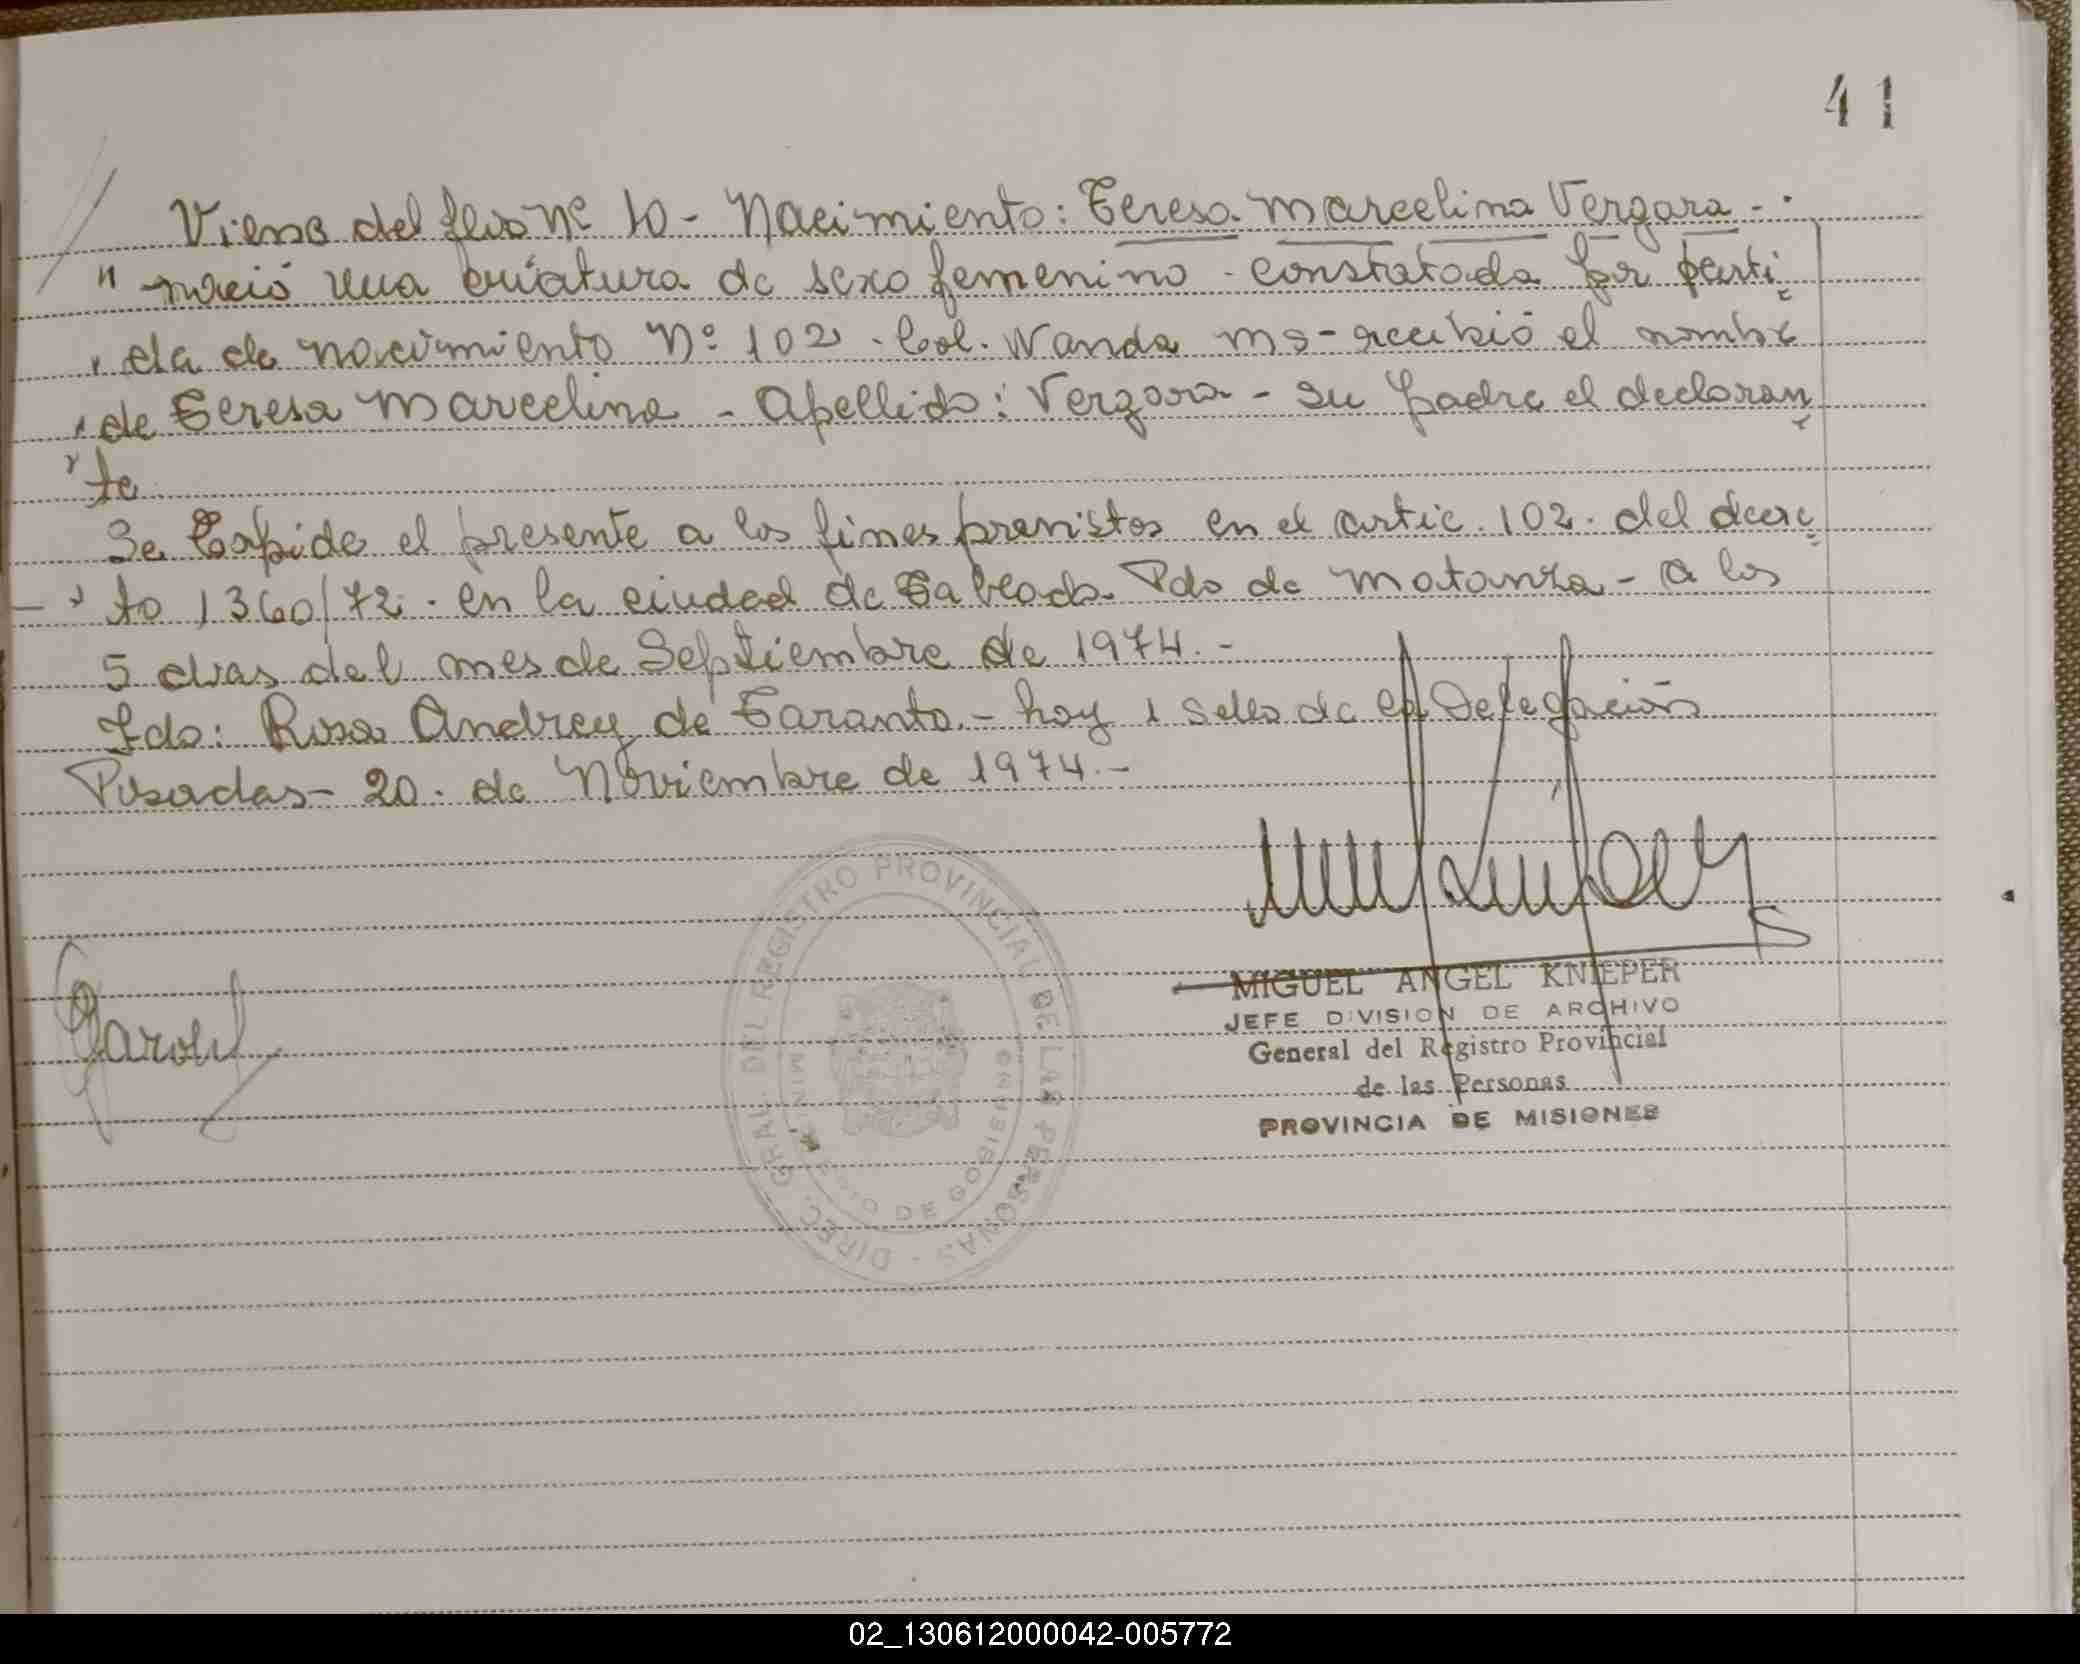 41
Viene del folio Nº 10 - Nacimiento: Teresa Marcelina Vergara - .
" nació una criatura de sexo femenino - constatada por parti
" da de nacimiento Nº 102 . Col. Wanda ms - recibió el nombre
" de Teresa Marcelina - Apellido: Vergara - Su padre el declaran
" te
Se Expide el presente a los fines previstos en el artic. 102. del decre
- " to 1360/72. en la ciudad de Tablada. Pdo de Matanza - a los
5 dias del mes de Septiembre de 1974. -
Fdo: Rosa Andrey de Taranto. - hay 1 sello de la Delegación
Posadas - 20. de Noviembre de 1974. -
DIREC. GRAL. DEL REGISTRO PROVINCIAL DE LAS PERSONAS -
MINISTERIO DE GOBIERNO
MIGUEL ANGEL KNIEPER
JEFE DIVISION DE ARCHIVO
General del Registro Provincial
de las Personas
PROVINCIA DE MISIONES
02_130612000042-005772